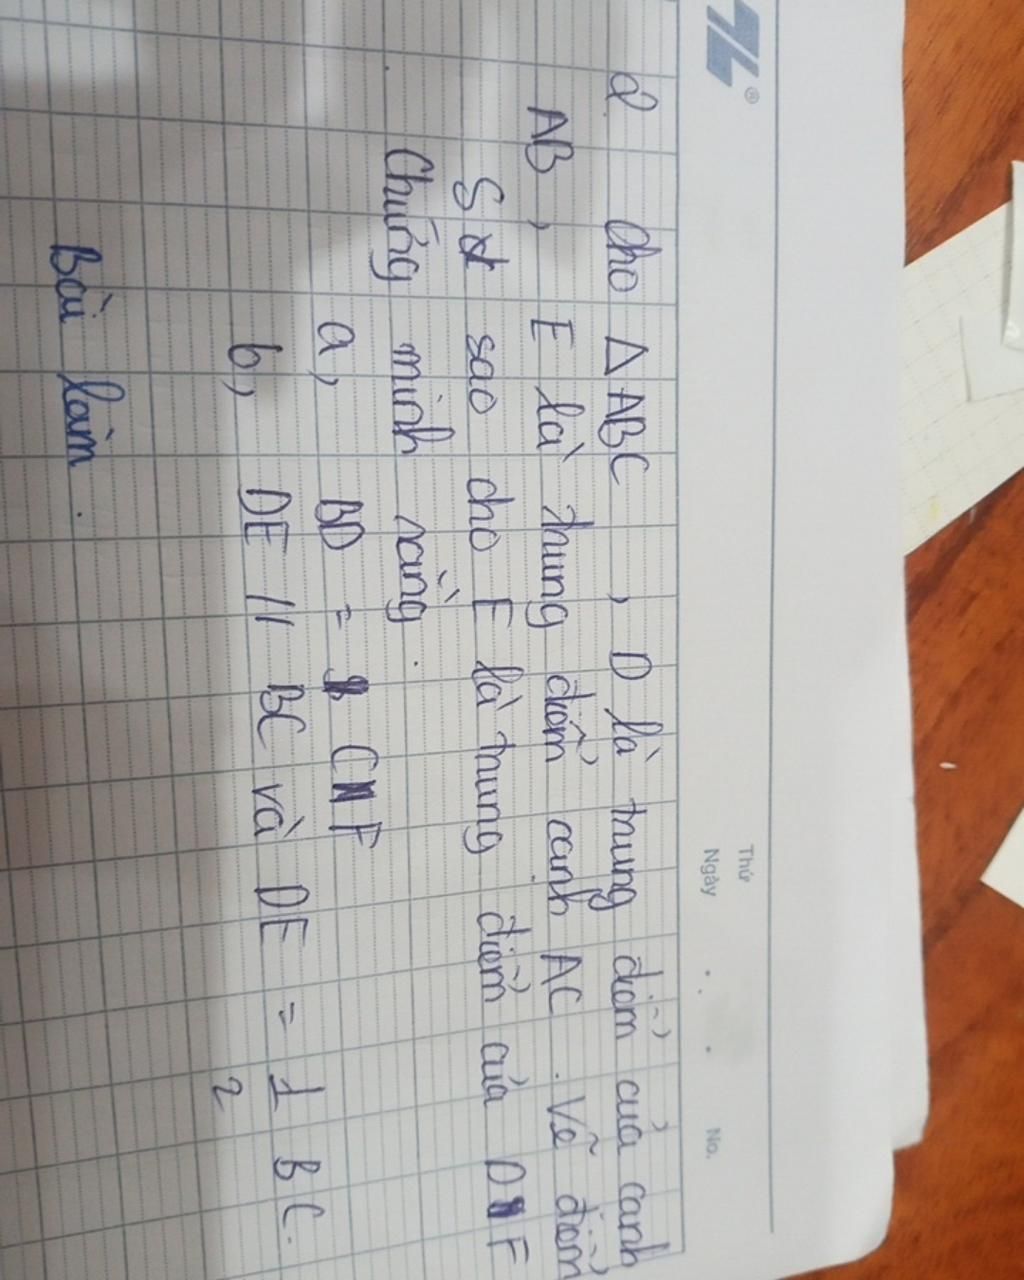 TL®
Thứ
Ngày . . . No.
2. Cho Δ ABC , D là trung điểm của cạnh
AB , E là trung điểm cạnh AC . Vẽ điểm
sao cho E là trung điểm của DF
Chứng minh rằng .
a, BD = CF
b, DE // BC và DE = 1/2 BC.
Bài làm .